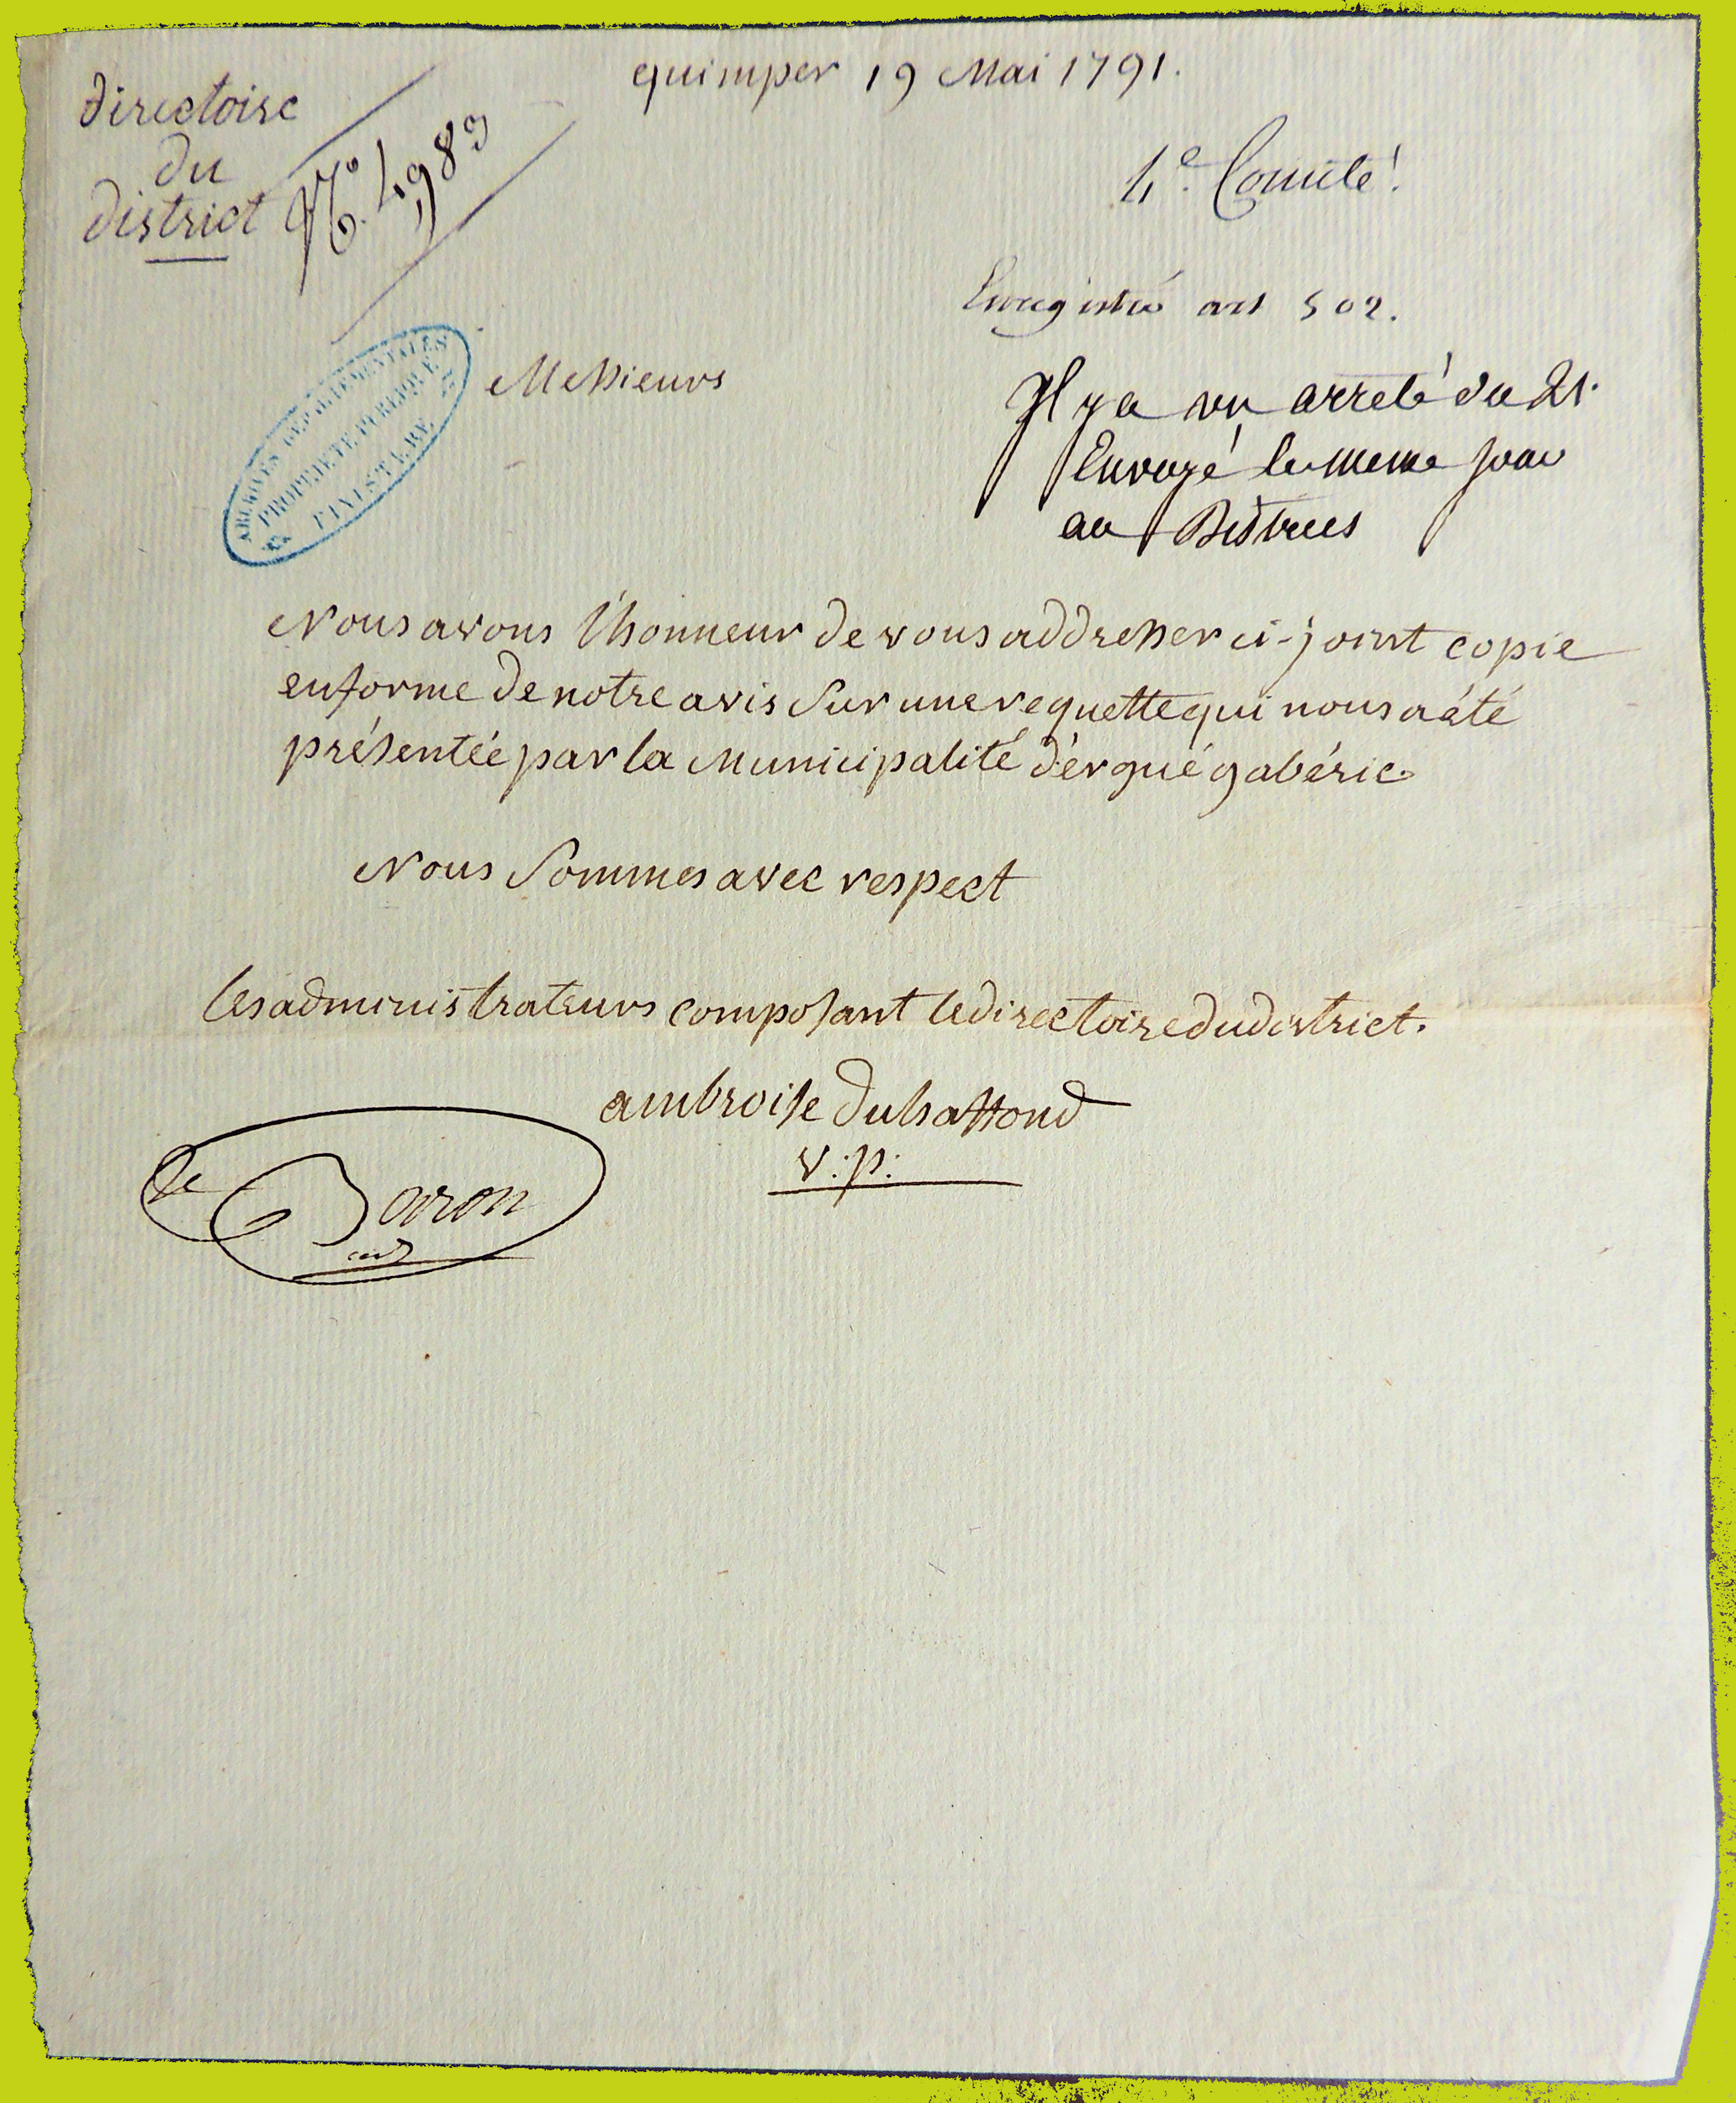 quimper 19 Mai 1791.
directoire
du
district
N.º 4983
4.e Comité.
Enregistré art 502.
Il y a un arreté du 21.
Envoyé le meme jour
au District
ARCHIVES DEPARTEMENTALES
PROPRIETE PUBLIQUE
FINISTERE
Messieurs
Nous avons l'honneur de vous addresser ci-joint copie
en forme de notre avis sur une requette qui nous a été
présentée par la Municipalité d'érgué gabéric.
Nous sommes avec respect
les administrateurs composant le directoire du district.
ambroise duhaffond
v:p:
le Baron